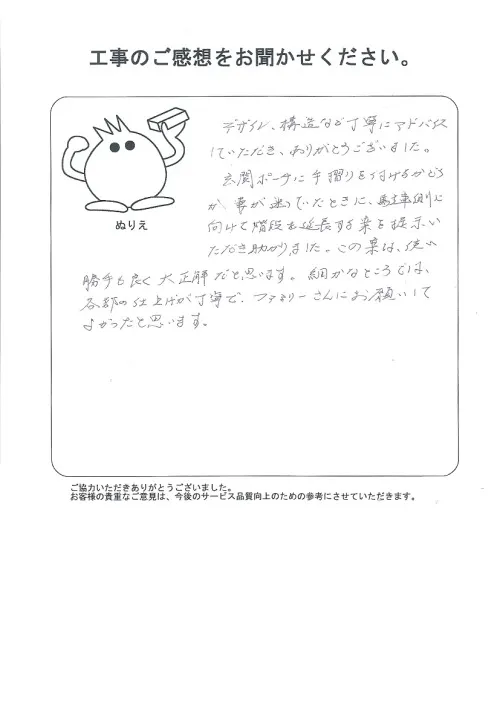 工事のご感想をお聞かせください。
デザイン、構造など丁寧にアドバイス
していただき、ありがとうございました。
玄関ポーチに手摺りを付けるかどう
か、妻が迷っていたときに、駐車側に
向けて階段を延長する案を提示い
ただき助かりました。この案は、使い
勝手も良く大正解だと思います。細かなところでは、
各部の仕上げが丁寧で、ファミリーさんにお願いして
よかったと思います。
ぬりえ
ご協力いただきありがとうございました。
お客様の貴重なご意見は、今後のサービス品質向上のための参考にさせていただきます。